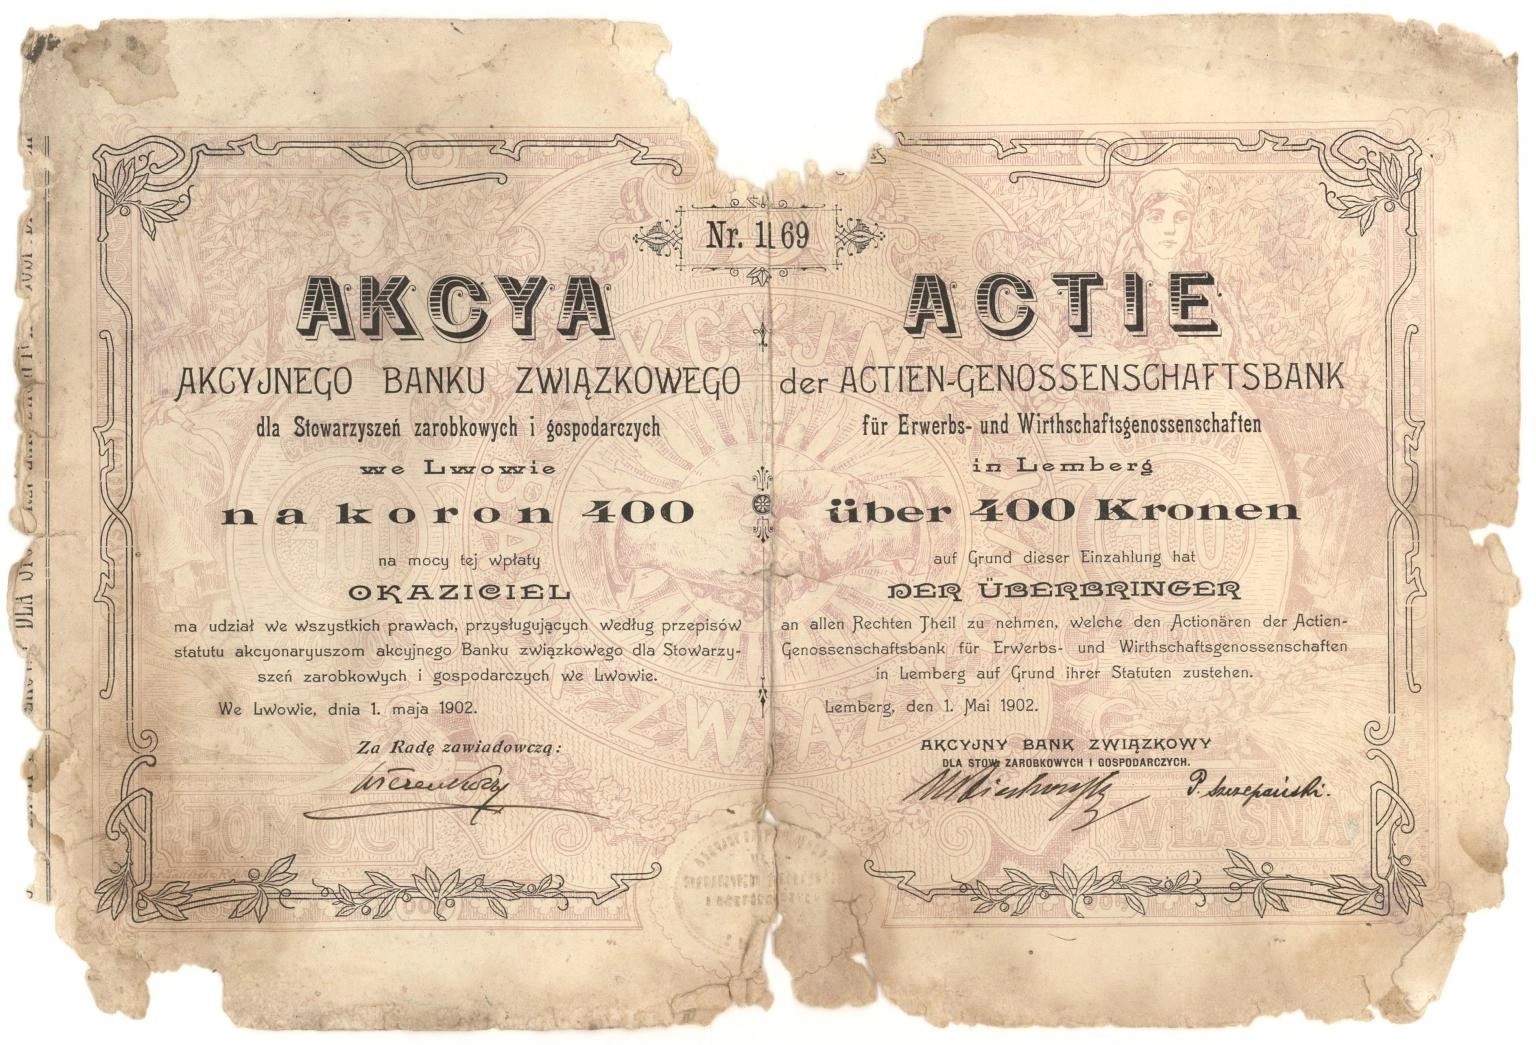 Nr. 1169
AKCYA
AKCYJNEGO BANKU ZWIĄZKOWEGO
dla Stowarzyszeń zarobkowych i gospodarczych
we Lwowie
na koron 400
na mocy tej wpłaty
OKAZICIEL
ma udział we wszystkich prawach, przysługujących według przepisów
statutu akcyonaryuszom akcyjnego Banku związkowego dla Stowarzy-
szeń zarobkowych i gospodarczych we Lwowie.
We Lwowie, dnia 1. maja 1902.
Za Radę zawiadowczą:
ACTIE
der ACTIEN-GENOSSENSCHAFTSBANK
für Erwerbs- und Wirthschaftsgenossenschaften
in Lemberg
über 400 Kronen
auf Grund dieser Einzahlung hat
DER ÜBERBRINGER
an allen Rechten Theil zu nehmen, welche den Actionären der Actien-
Genossenschaftsbank für Erwerbs- und Wirthschaftsgenossenschaften
in Lemberg auf Grund ihrer Statuten zustehen.
Lemberg, den 1. Mai 1902.
AKCYJNY BANK ZWIĄZKOWY
DLA STOW. ZAROBKOWYCH I GOSPODARCZYCH.
P. Szczepański.
POMOC
WŁASNA